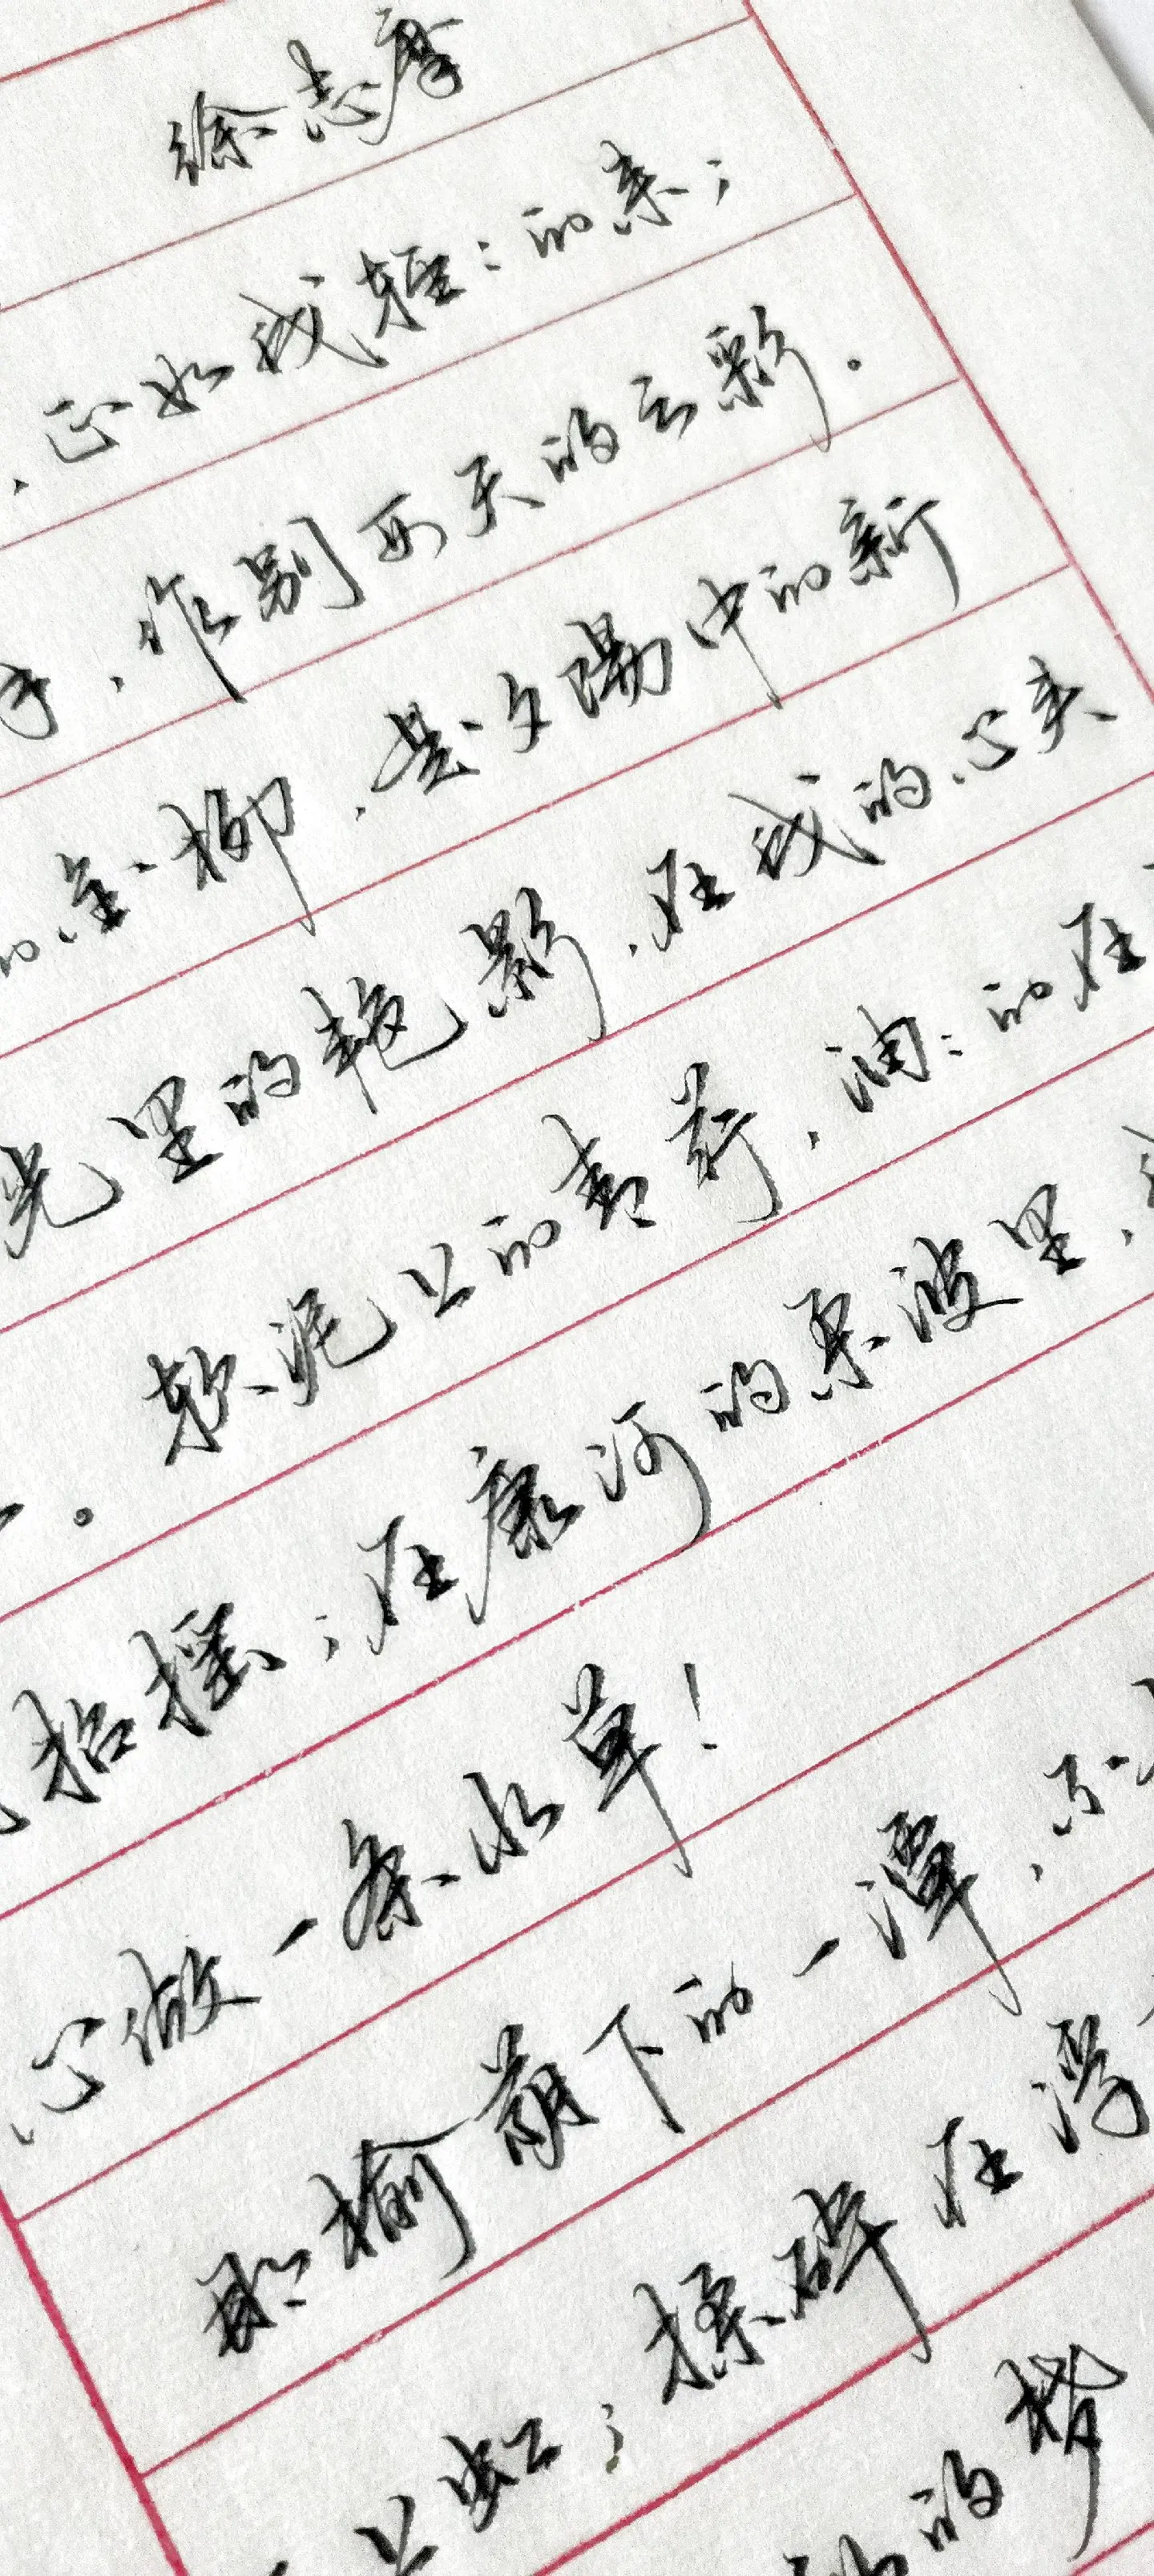 徐志摩
，正如我轻：的来；
手，作别西天的云彩。
的金柳，是夕阳中的新
光里的艳影，在我的心头
软泥上的青荇，油：的在
。
招摇；在康河的柔波里，
心做一条水草！
那榆荫下的一潭，不
上虹；揉碎在浮
的梦